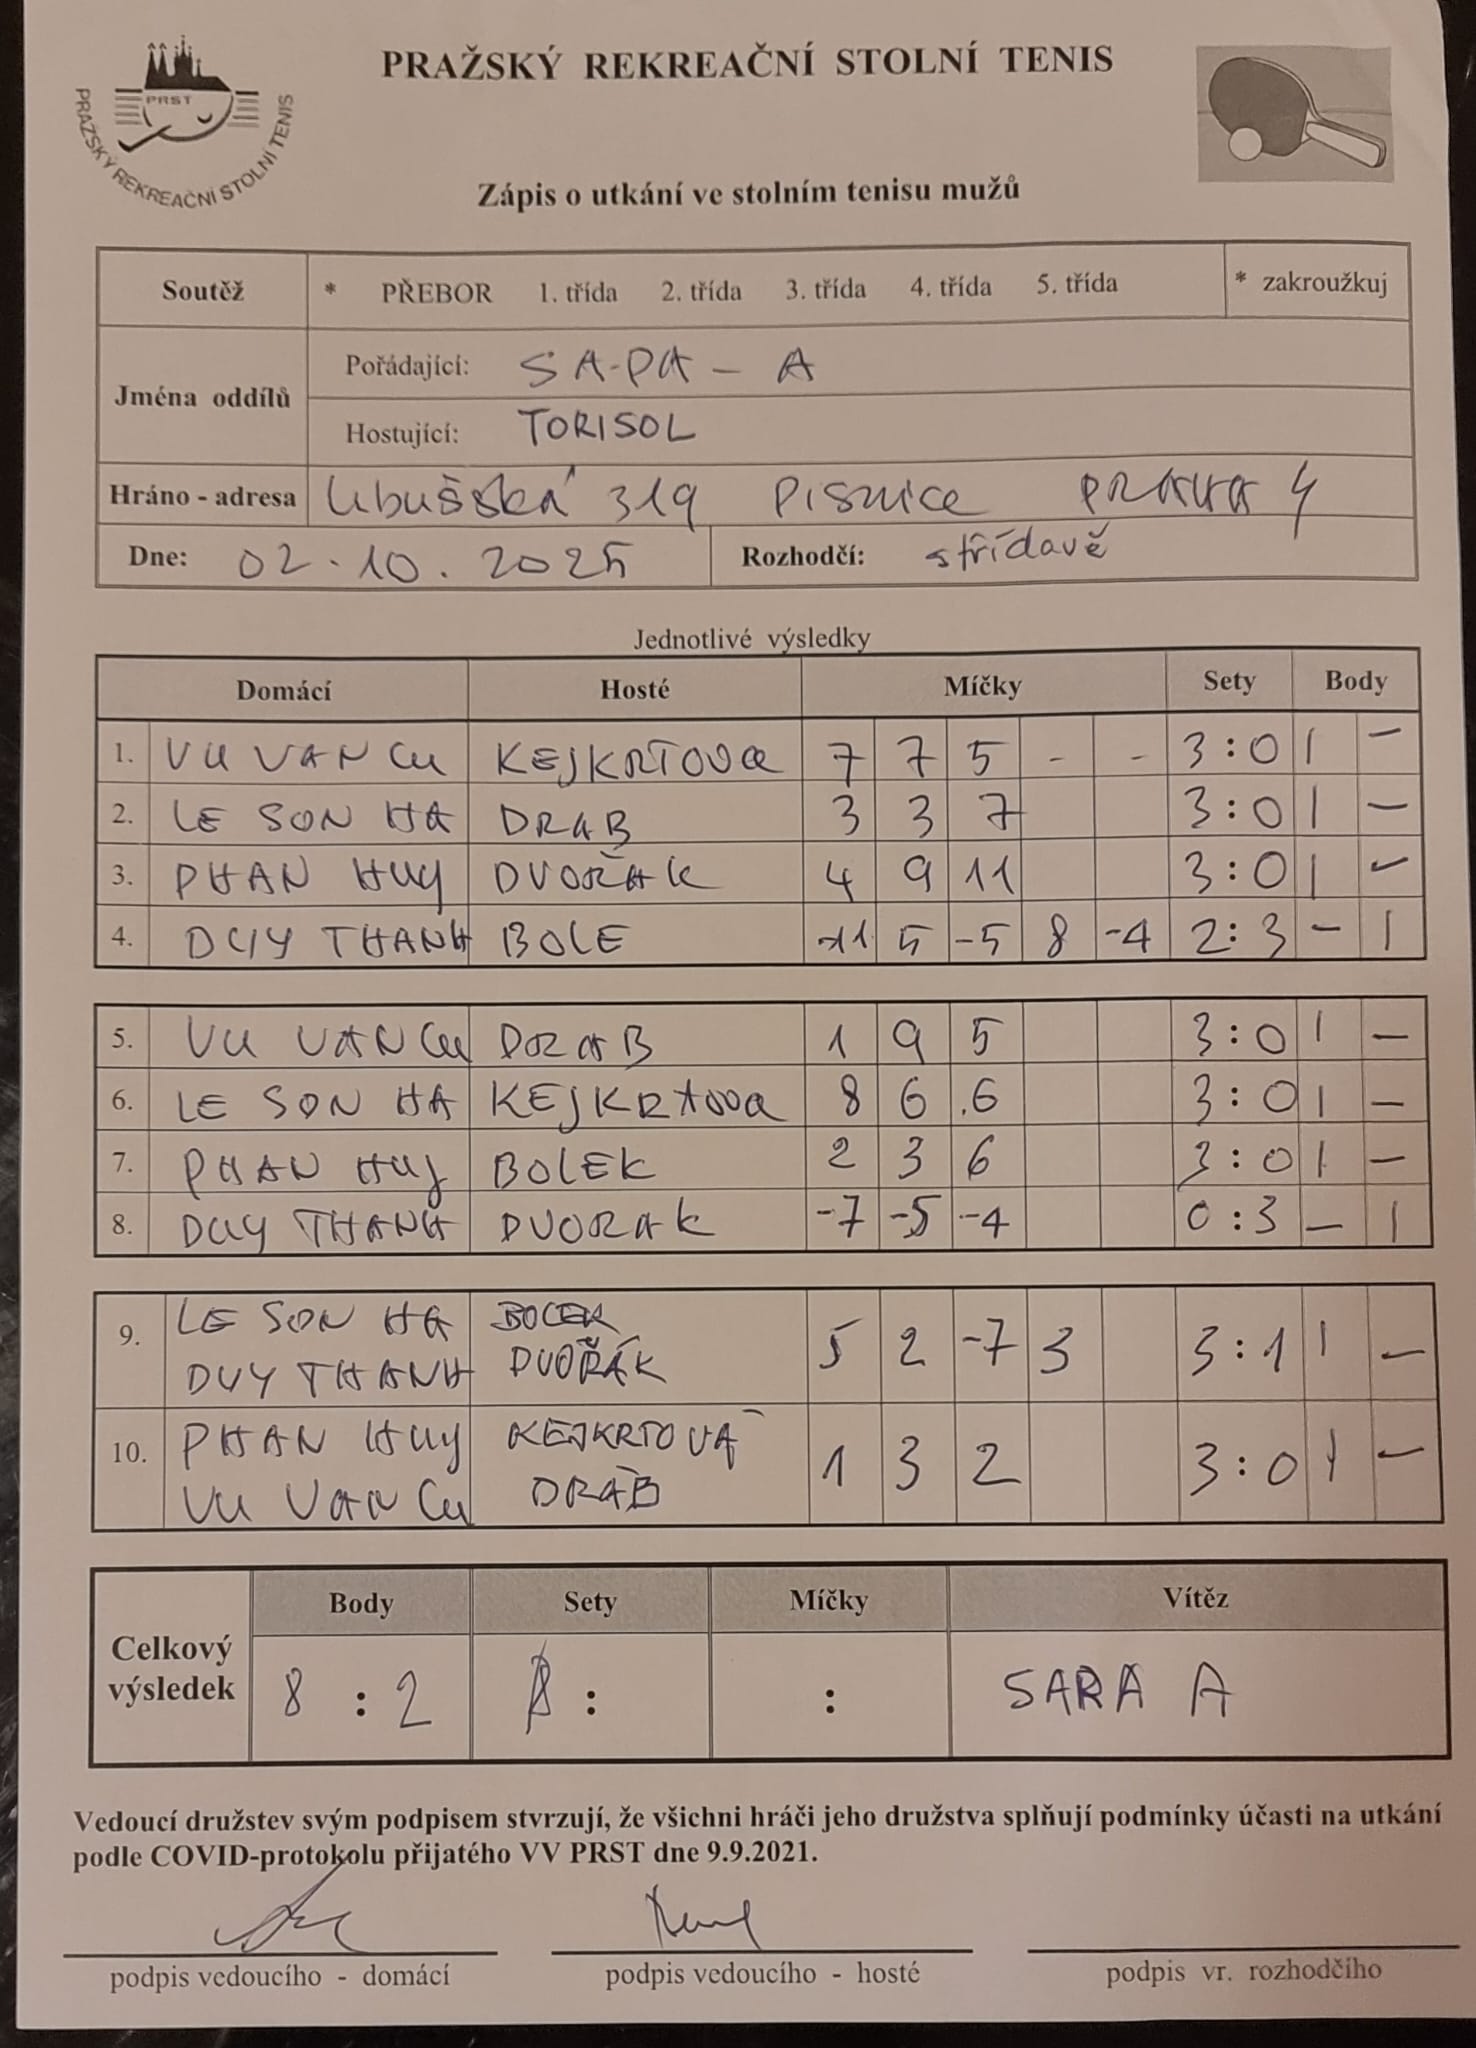 PRAŽSKÝ REKREAČNÍ STOLNÍ TENIS
PRST
PRAŽSKÝ REKREAČNÍ STOLNÍ TENIS
Zápis o utkání ve stolním tenisu mužů
Soutěž * PŘEBOR 1. třída 2. třída 3. třída 4. třída 5. třída * zakroužkuj
Jména oddílů
Pořádající: SA-PA - A
Hostující: TORISOL
Hráno - adresa Libušská 319 PISNICE PRAHA 4
Dne: 02.10.2025 Rozhodčí: střídavě
Jednotlivé výsledky
Domácí Hosté Míčky Sety Body
1. VU VAN CU KEJKRTOVA 7 7 5 - - 3:0 1 -
2. LE SON HA DRAB 3 3 7 3:0 1 -
3. PHAN HUY DVOŘAK 4 9 11 3:0 1 -
4. DUY THANH BOLE -11 5 -5 8 -4 2:3 - 1
5. VU VAN CU DRAB 1 9 5 3:0 1 -
6. LE SON HA KEJKRTOVA 8 6 6 3:0 1 -
7. PHAN HUY BOLEK 2 3 6 3:0 1 -
8. DUY THANH DVORAK -7 -5 -4 0:3 - 1
9. LE SON HA BOLEK 5 2 -7 3 3:1 1 -
DUY THANH DVOŘÁK
10. PHAN HUY KEJKRTOVÁ 1 3 2 3:0 1 -
VU VAN CU DRÁB
Body Sety Míčky Vítěz
Celkový výsledek 8 : 2 : : SAPA A
Vedoucí družstev svým podpisem stvrzují, že všichni hráči jeho družstva splňují podmínky účasti na utkání
podle COVID-protokolu přijatého VV PRST dne 9.9.2021.
podpis vedoucího - domácí podpis vedoucího - hosté podpis vr. rozhodčího